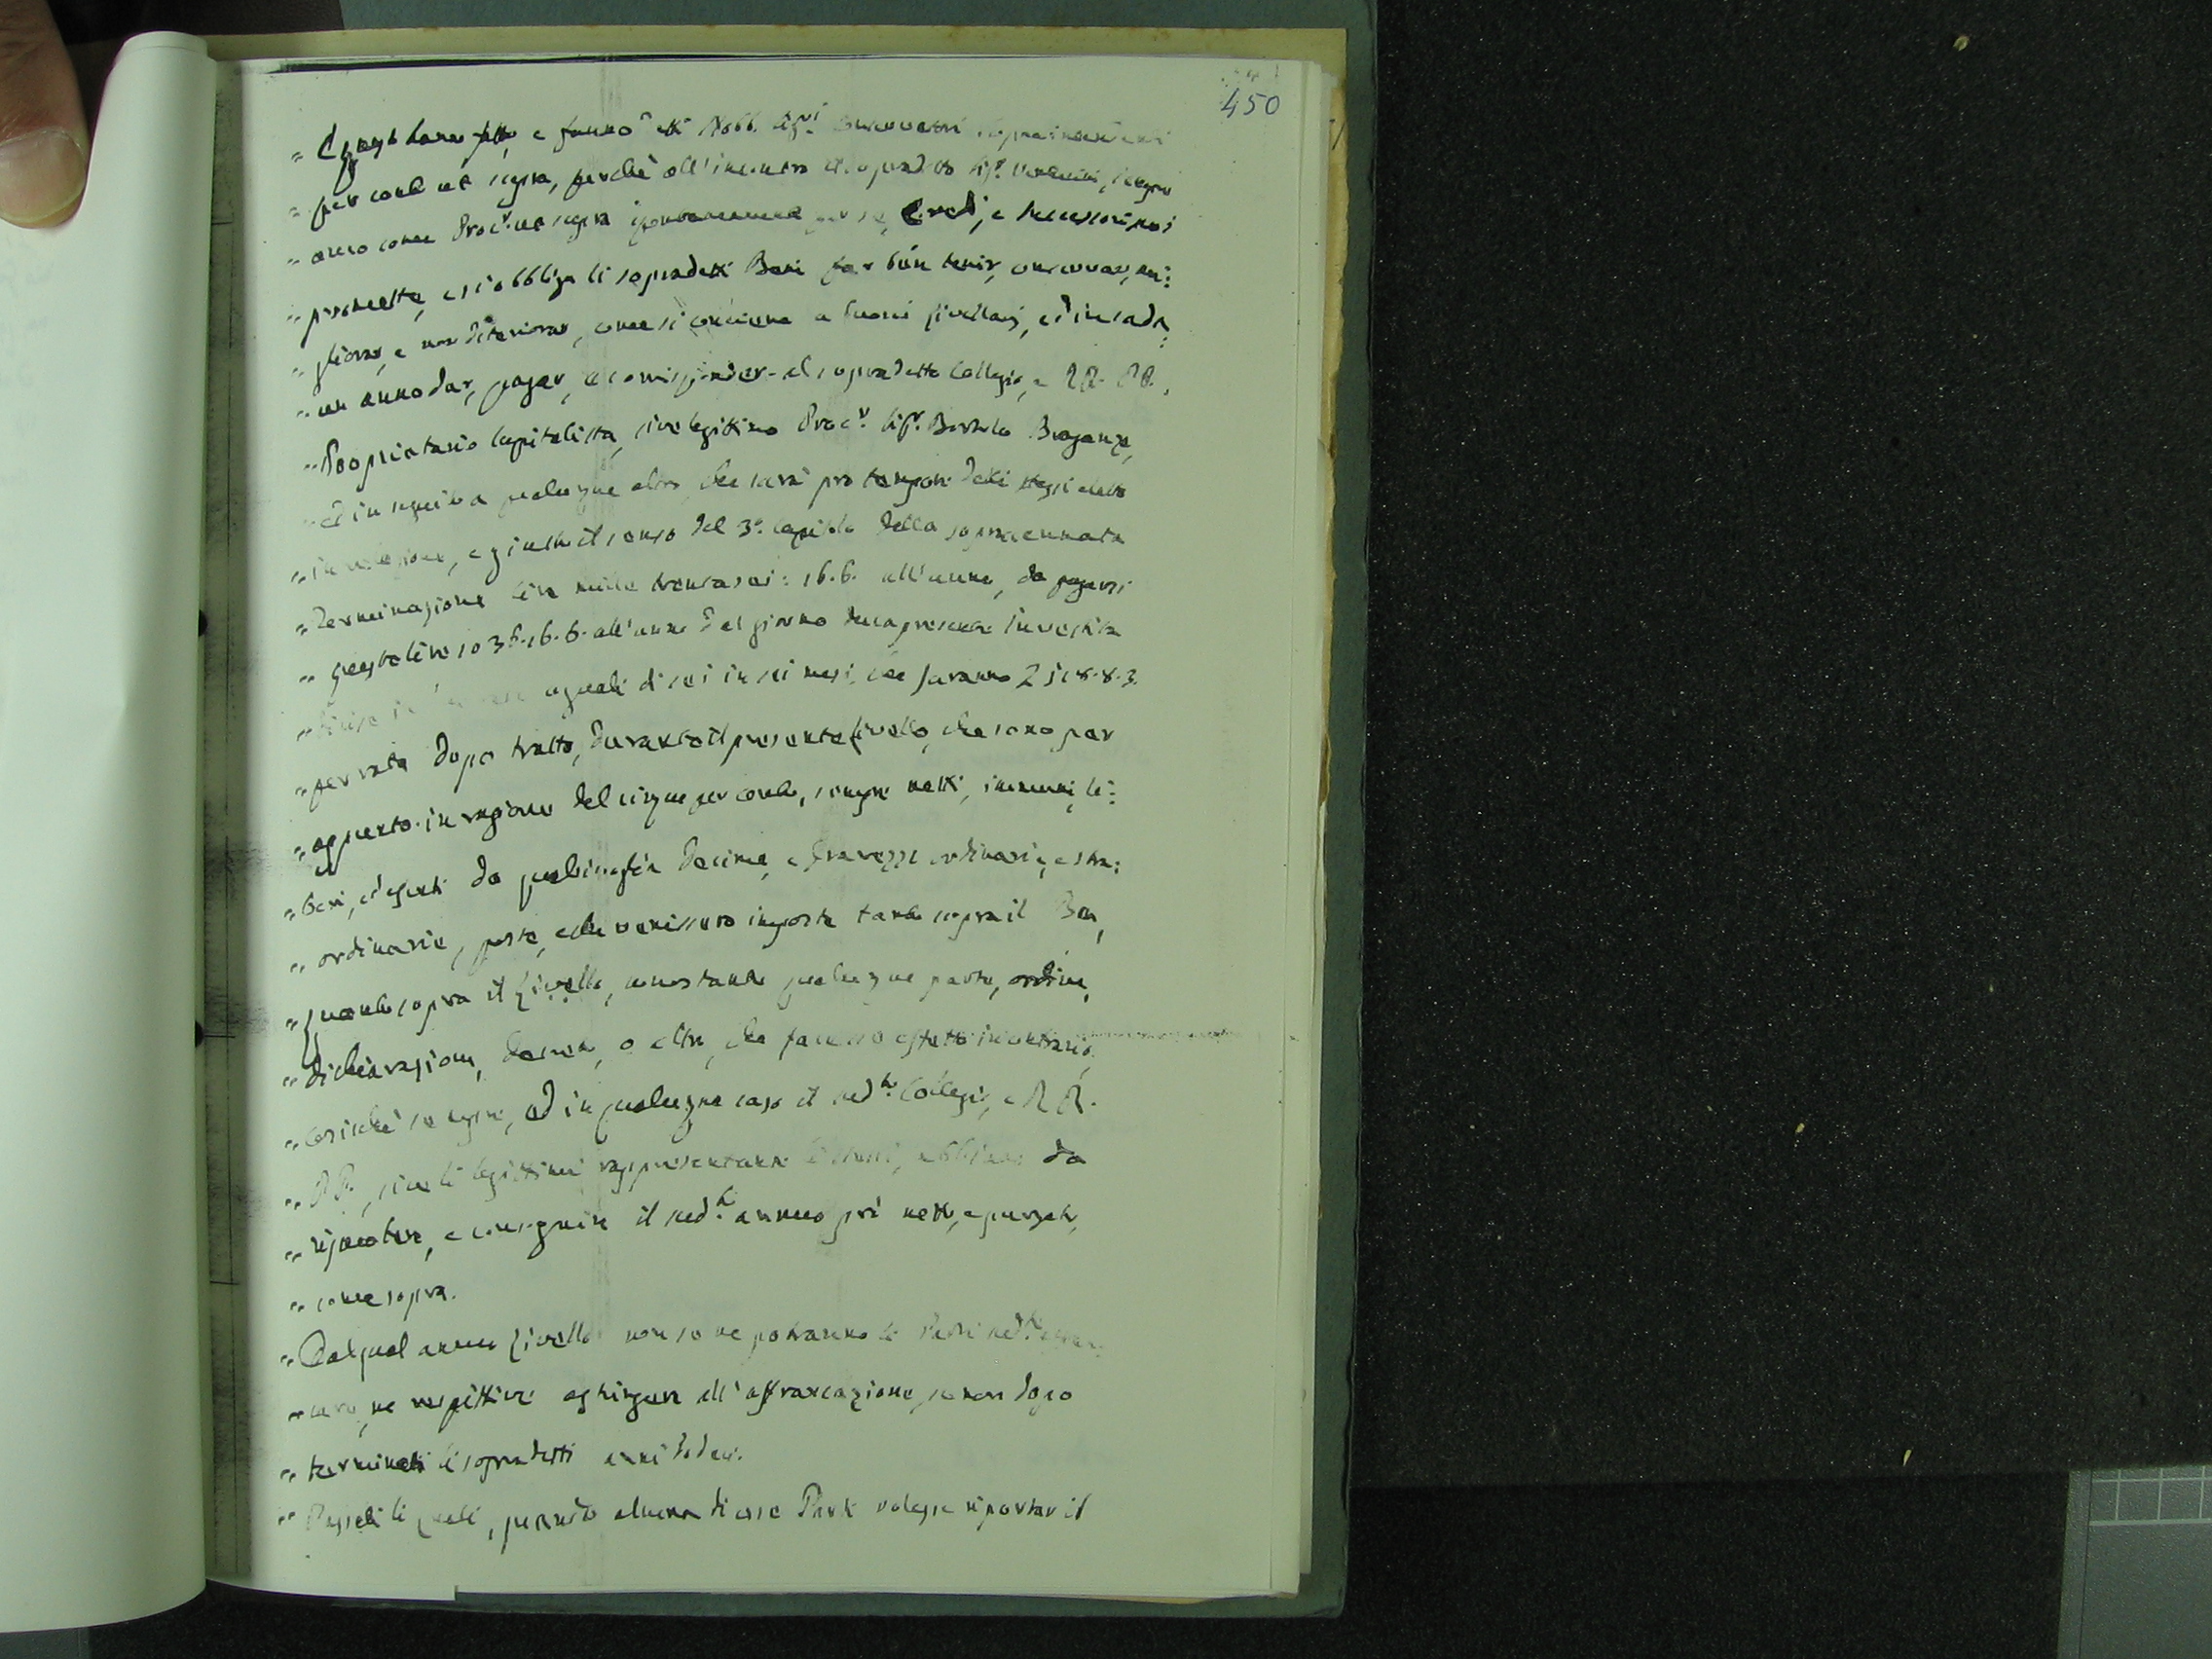 450
" e fanno detti Nobb. Sig.ri Conservatori
" per conto ut supra, perchè all'incontro il sopradetto Sig.r
" anco come Proc.r ut supra spontaneamente per se, Eredi, e Successori suoi
" promette, e si obbliga li sopradetti Beni far ben tenir, conservar, mi:
" gliorar, e non deteriorar, come si conviene a buoni livellarj, ed in cada
" un anno dar, pagar, e corrisponder al sopradetto Collegio, e RR. PP.
" Proprietario Capitalista, sive legittimo Proc.r Sig.r Bortolo Braganza,
" ed in seguito a qualunque altro, che sarà pro tempore dalli stessi eletto
" e giusto il senso del 3.o Capitolo della sopraccennata
" Terminazione lire mille trentasei: 16.6. all'anno, da pagarsi
" lire 1036.16.6. all'anno dal giorno della presente Investita
" uguali di sei in sei mesi, che saranno 518.8.3.
" per rata dopo tratto, durante il presente livello, che sono per
" appunto in ragione del cinque per cento, sempre netti, immuni, li:
" beri, ed esenti da qualsivoglia Decima, e Gravezze ordinarie, e stra:
" ordinarie, poste, e che venissero imposte tanto sopra il Ben,
" quanto sopra il livello, nonostante qualunque parte, ordine,
" dichiarazion, Decreto, o altro, che facesse effetto in contrario,
" cosichè sempre, ed in qualunque caso il sud.to Collegio, e RR.
" PP., sive li legittimi rappresentanti li stessi, abbiano da
" riscuotere, e conseguire il sud.to annuo prò netto, e purgato,
" come sopra.
" Dal qual annuo livello non se ne potranno le Parti sud.te
" ne respettive astringere all'affrancazione, se non dopo
" terminati li sopradetti anni dodeci.
" Passati li quali, quando alcuna di esse Parti volesse riportar il